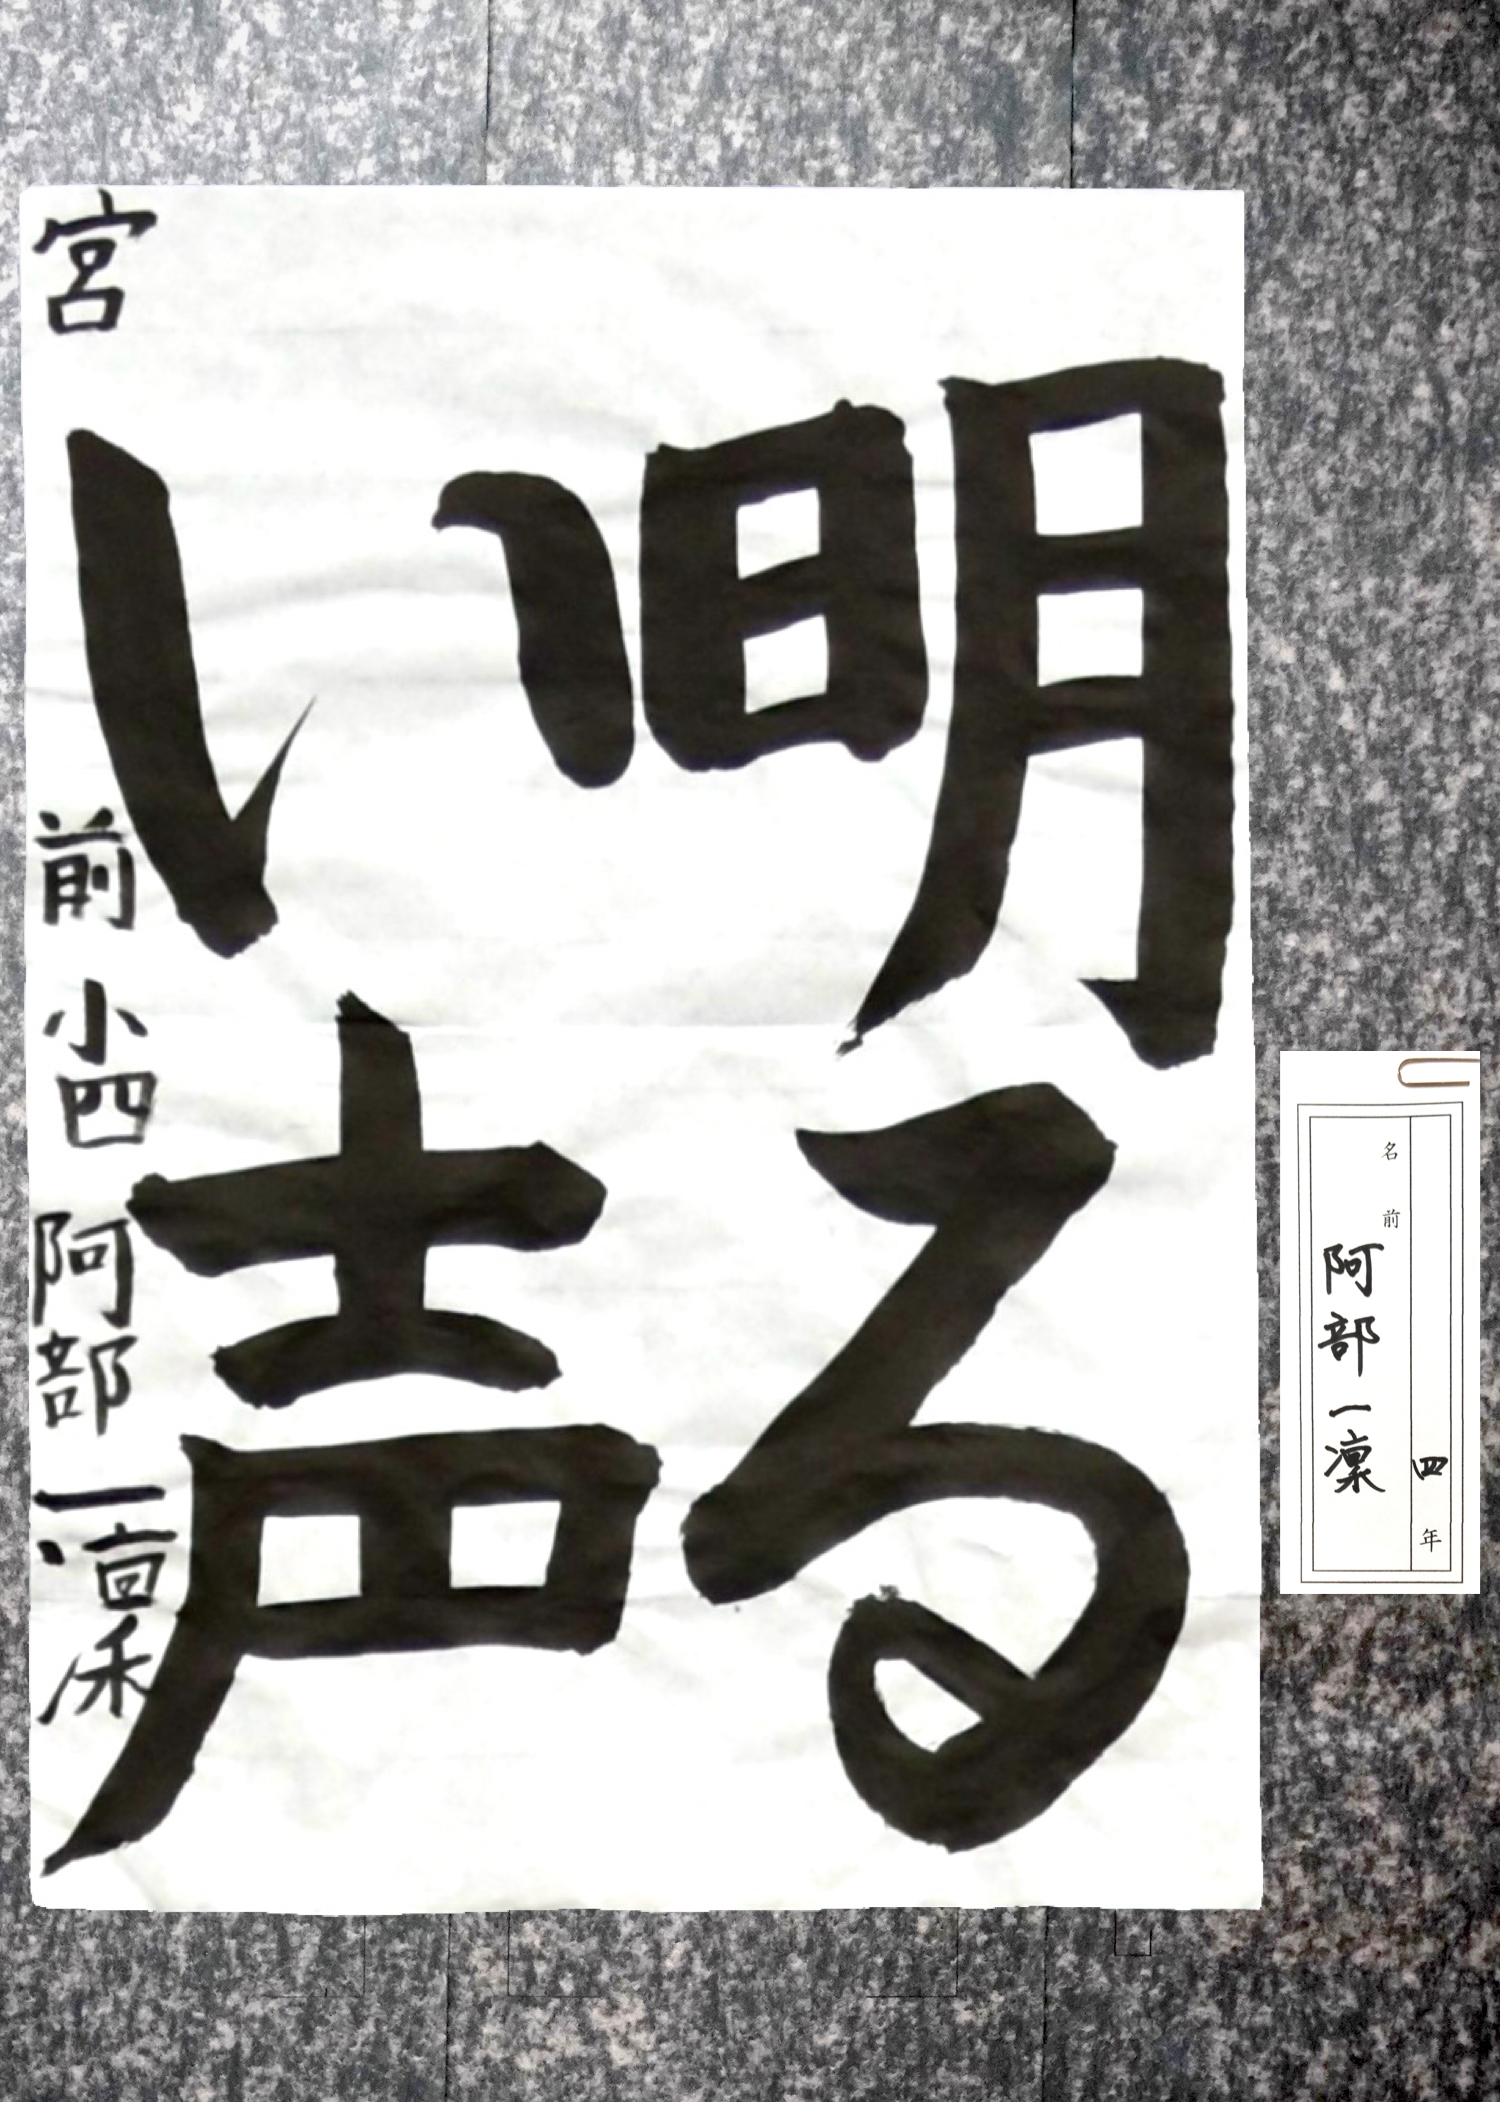 明る
い声
宮前小四 阿部一凛
四年
名前
阿部一凜